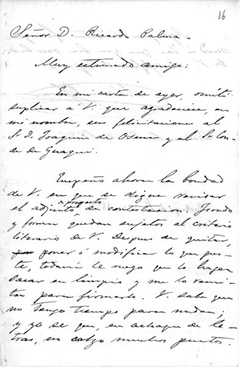 16
Señor D. Ricardo Palma.
Muy estimado amigo:
En mi carta de ayer, omití
suplicar a V. que agradeciese, en
mi nombre, sus felicitaciones al
Sr. D. Joaquin de Osma y al Sr. Con-
de de Guaqui.
Empeño ahora la bondad
de V. en que se digne revisar
el adjunto proyecto de contestacion. Fondo
y forma quedan sujetos al criterio
literario de V. Despues de quitar,
poner ó modificar lo que gus-
te, todavia le ruego que lo hagan
sacar en limpio y me lo remi-
tan para firmarlo. V. sabe que
no tengo tiempo para nada;
y yo se que, en achaque de le-
tras, no calzo muchos puntos.